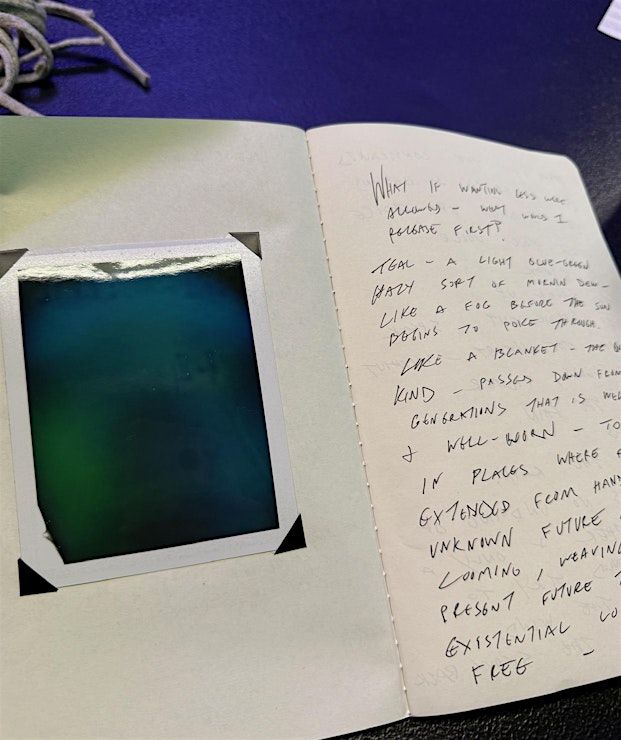 WHAT IF WANTING LESS WERE
ALLOWED – WHAT WOULD I
RELEASE FIRST?
TEAL – A LIGHT BLUE-GREEN
HAZY SORT OF MORNIN DEW –
LIKE A FOG BEFORE THE SUN
BEGINS TO POKE THROUGH.
LIKE A BLANKET – THE
KIND – PASSED DOWN FROM
GENERATIONS THAT IS
& WELL-WORN –
IN PLACES WHERE
EXTENDED FROM
UNKNOWN FUTURE
LOOMING, WEAVING
PRESENT FUTURE
EXISTENTIAL
FREE –